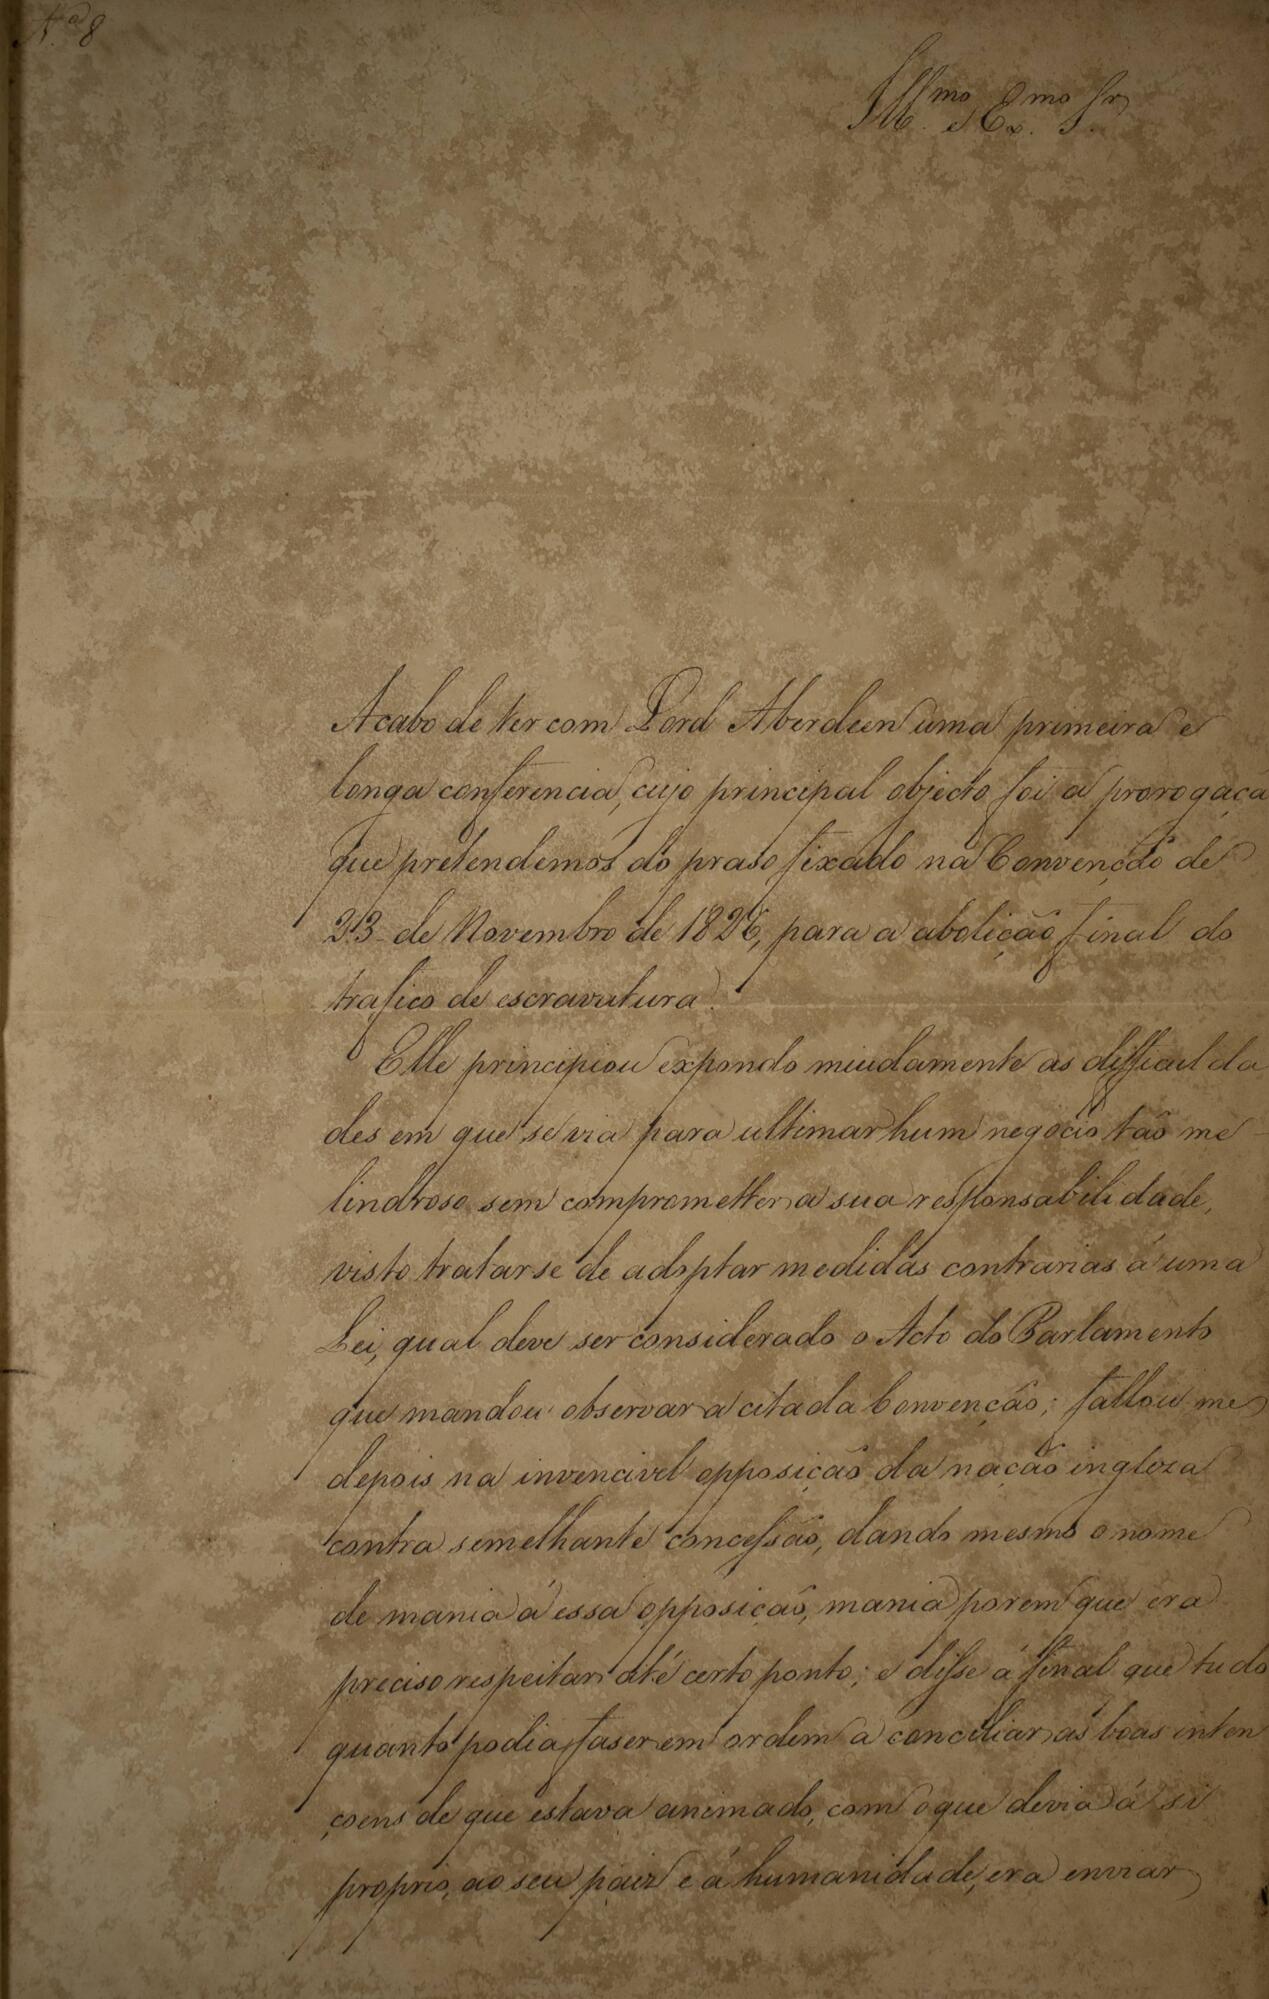 N.º 8
Ill.mo e Ex.mo Sr.
Acabo de ter com Lord Aberdeen uma primeira e
longa conferencia, cujo principal objecto foi a prorogaçã
que pretendemos do praso fixado na Convenção de
23 de Novembro de 1826, para a abolição final do
trafico de escravatura.
Elle principiou expondo miudamente as difficulda
des em que se via para ultimar hum negocio tão me-
lindroso sem compromettter a sua responsabilidade,
visto tratarse de adoptar medidas contrarias á uma
Lei, qual deve ser considerado o Acto do Parlamento
que mandou observar a citada Convenção; fallou me
depois na invencivel opposição da nação ingleza
contra semelhante concessão, dando mesmo o nome
de mania á essa opposição, mania porem que era
preciso respeitar até certo ponto; e disse á final que tudo
quanto podia faser em ordem a conciliar as boas inten
çoens de que estava animado, com o que devia á si
proprio, ao seu paiz e á humanidade, era enviar